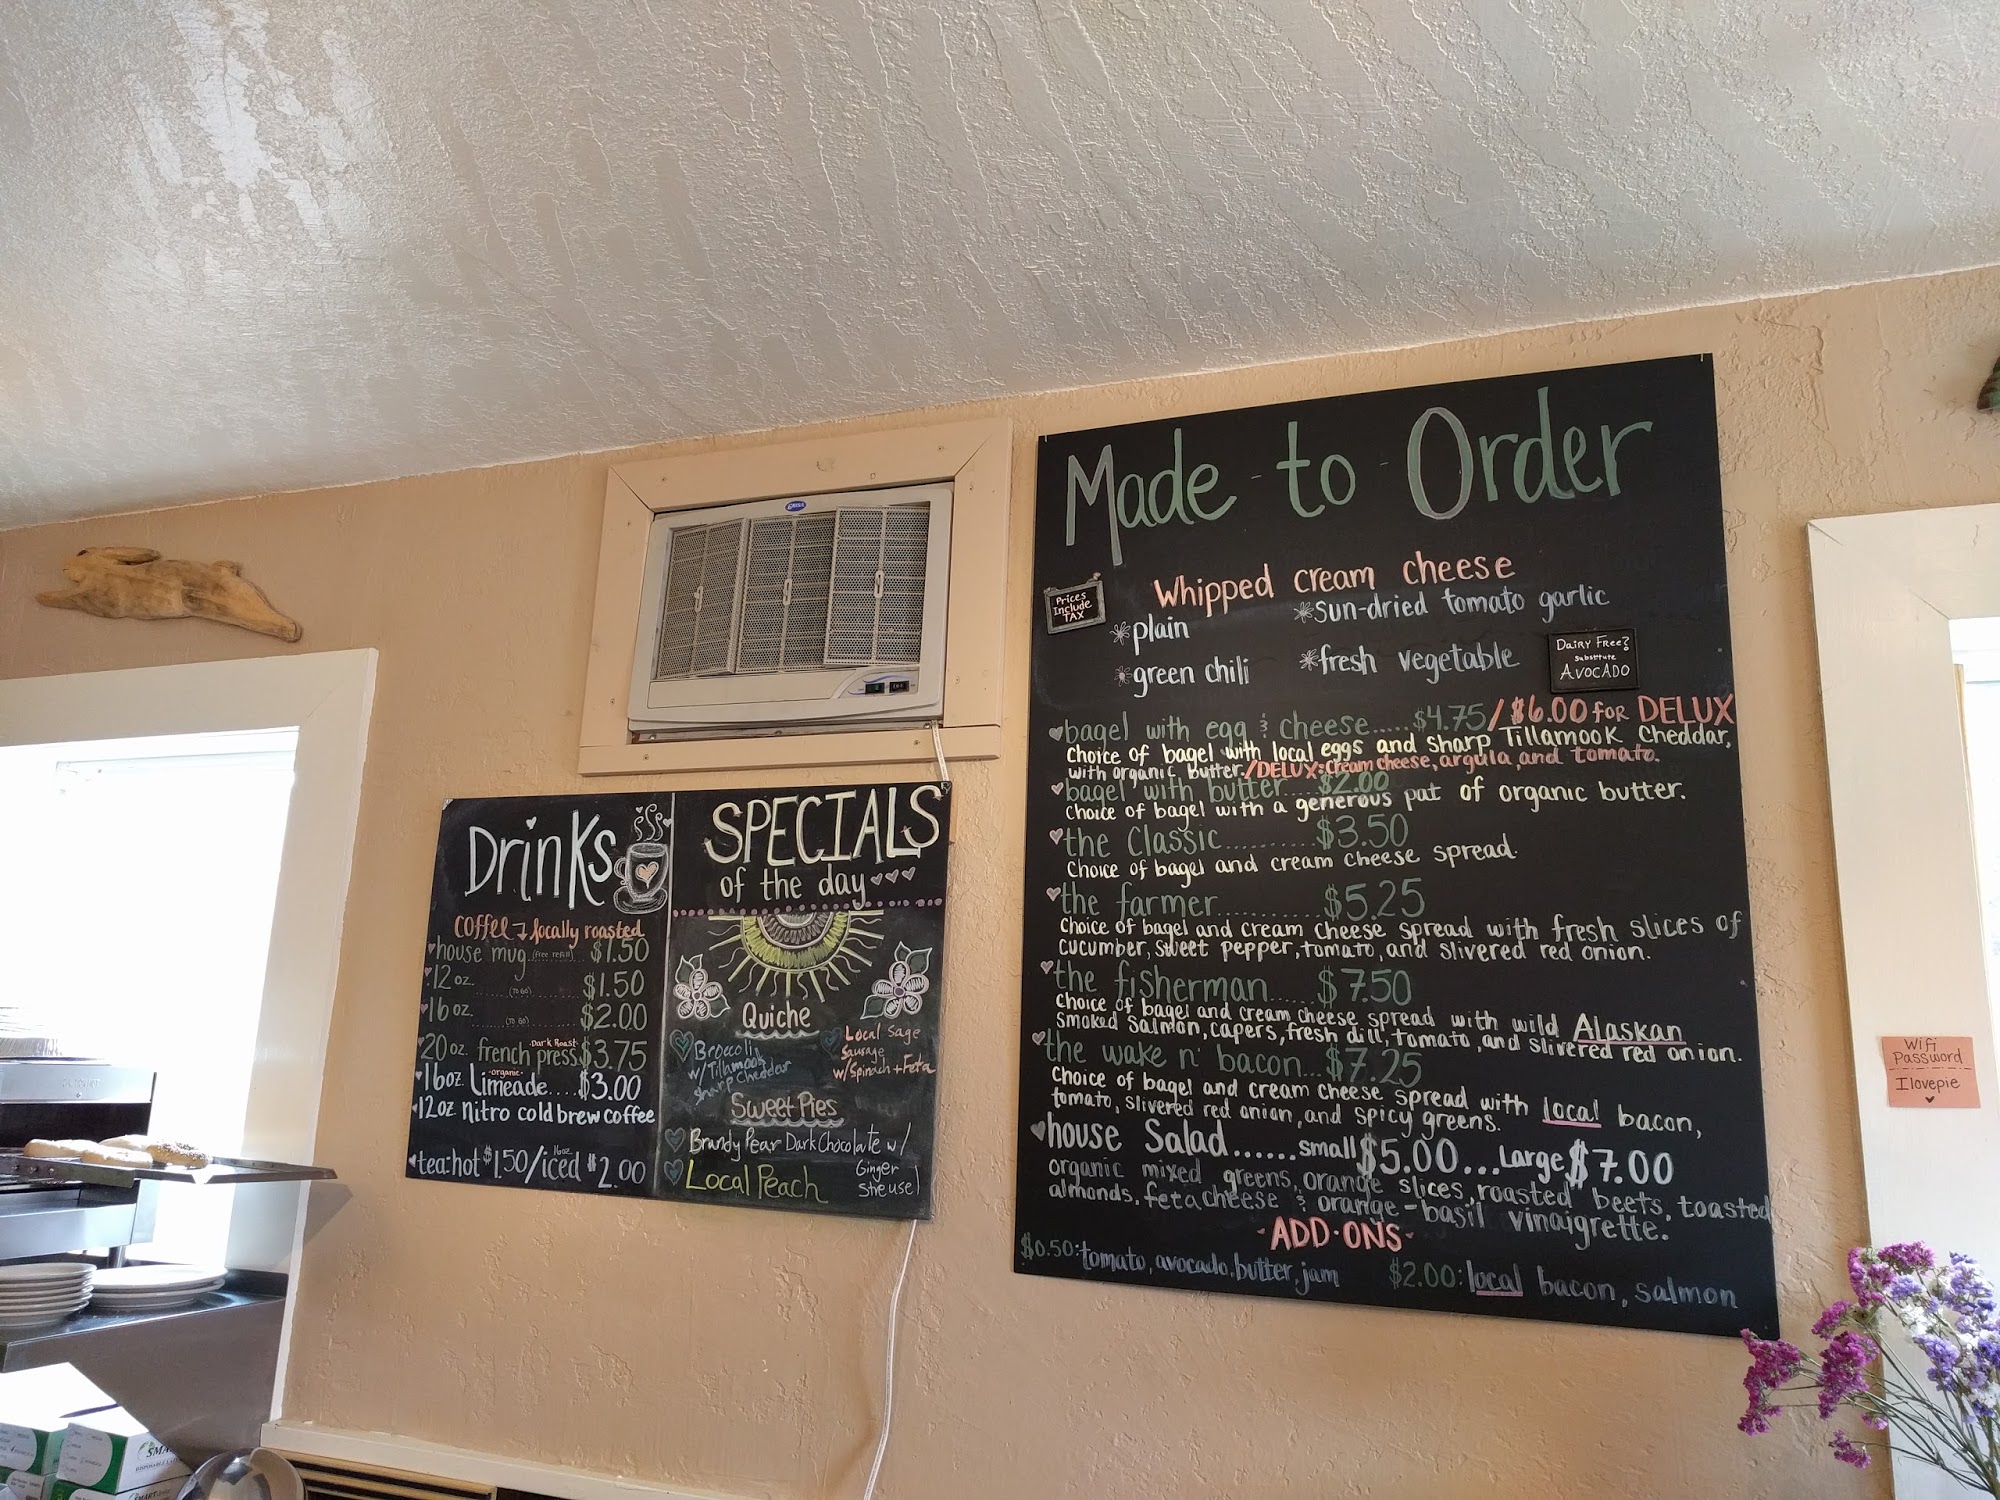 Drinks
coffee → locally roasted
house mug (free refill) $1.50
12 oz. (TO GO) $1.50
16 oz. (TO GO) $2.00
Dark Roast
20 oz. french press $3.75
organic
16oz. Limeade.... $3.00
12oz. nitro cold brew coffee
tea: hot $1.50/iced 16oz. $2.00
SPECIALS
of the day
Quiche
Broccoli
w/Tillamook
sharp cheddar
Local Sage
Sausage
w/Spinach + Feta
Sweet Pies
Brandy Pear Dark Chocolate w/
Ginger
Local Peach
Made - to - Order
Prices
Include
TAX
Whipped cream cheese
plain
sun-dried tomato garlic
green chili
fresh vegetable
Dairy Free?
substitute
AVOCADO
bagel with egg & cheese.....$4.75/$6.00 for DELUX
choice of bagel with local eggs and sharp Tillamook cheddar,
with organic butter./DELUX: cream cheese, argula, and tomato.
bagel with butter.....$2.00
choice of bagel with a generous pat of organic butter.
the classic..........$3.50
choice of bagel and cream cheese spread.
the farmer..........$5.25
choice of bagel and cream cheese spread with fresh slices of
cucumber, sweet pepper, tomato, and slivered red onion.
the fisherman......$7.50
choice of bagel and cream cheese spread with wild Alaskan
smoked salmon, capers, fresh dill, tomato, and slivered red onion.
the wake n' bacon...$7.25
choice of bagel and cream cheese spread with local bacon,
tomato, slivered red onion, and spicy greens.
house Salad......small $5.00...Large $7.00
organic mixed greens, orange slices, roasted beets, toasted
almonds, feta cheese & orange-basil vinaigrette.
-ADD-ONS-
$0.50: tomato, avocado, butter, jam
$2.00: local bacon, salmon
Wifi
Password
Ilovepie